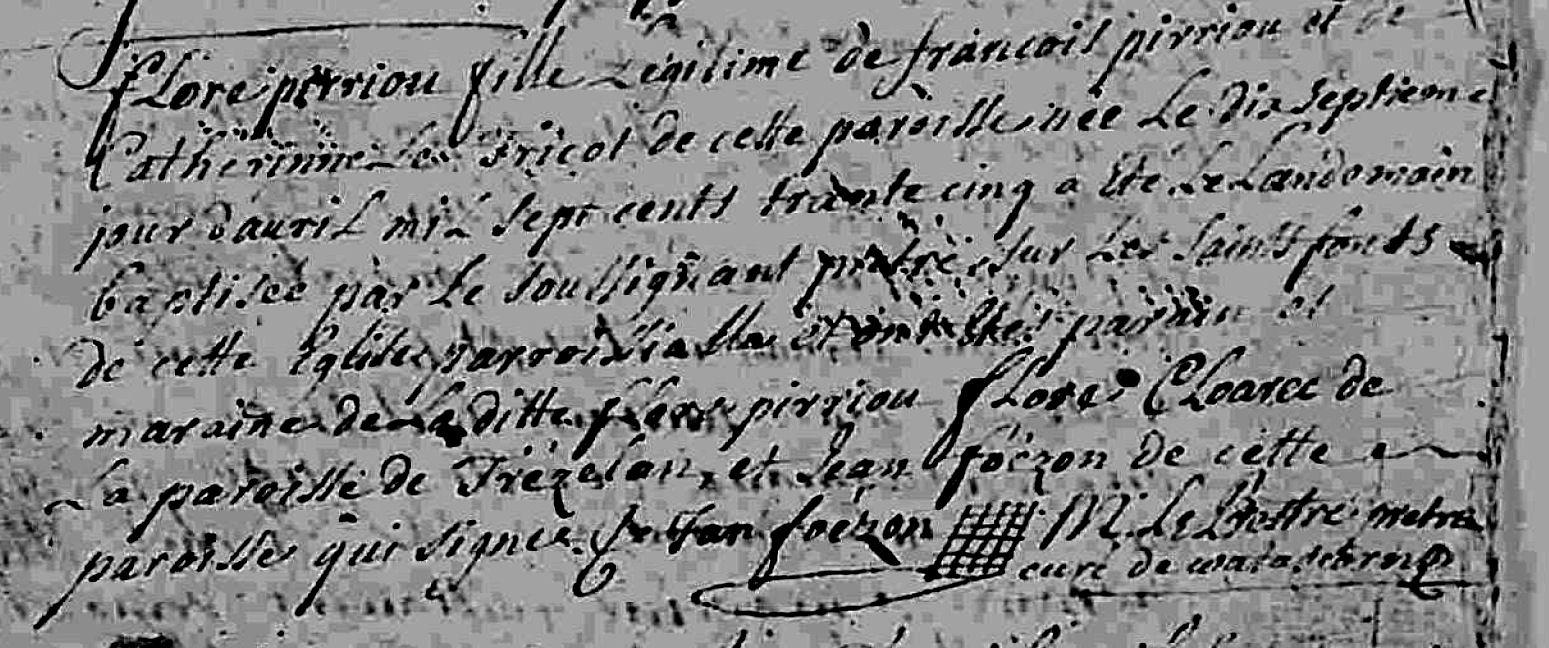 fLore pirriou fille Legitime de francois pirriou et de
Catherinne Le Tricot de cette paroisse née Le dix septieme
jour d'auriL miL sept cents trante cinq a été Le Landemain
baptisée par Le soussignant pretre sur Les saints fonts
de cette Eglise parroissialle et ont étés parain et
maraine de La ditte flore pirriou fLore CLoarec de
La paroisse de Trézelan, et Jean foëzon de cette
paroisse qui signe Jan foëzon M. Le
curé de